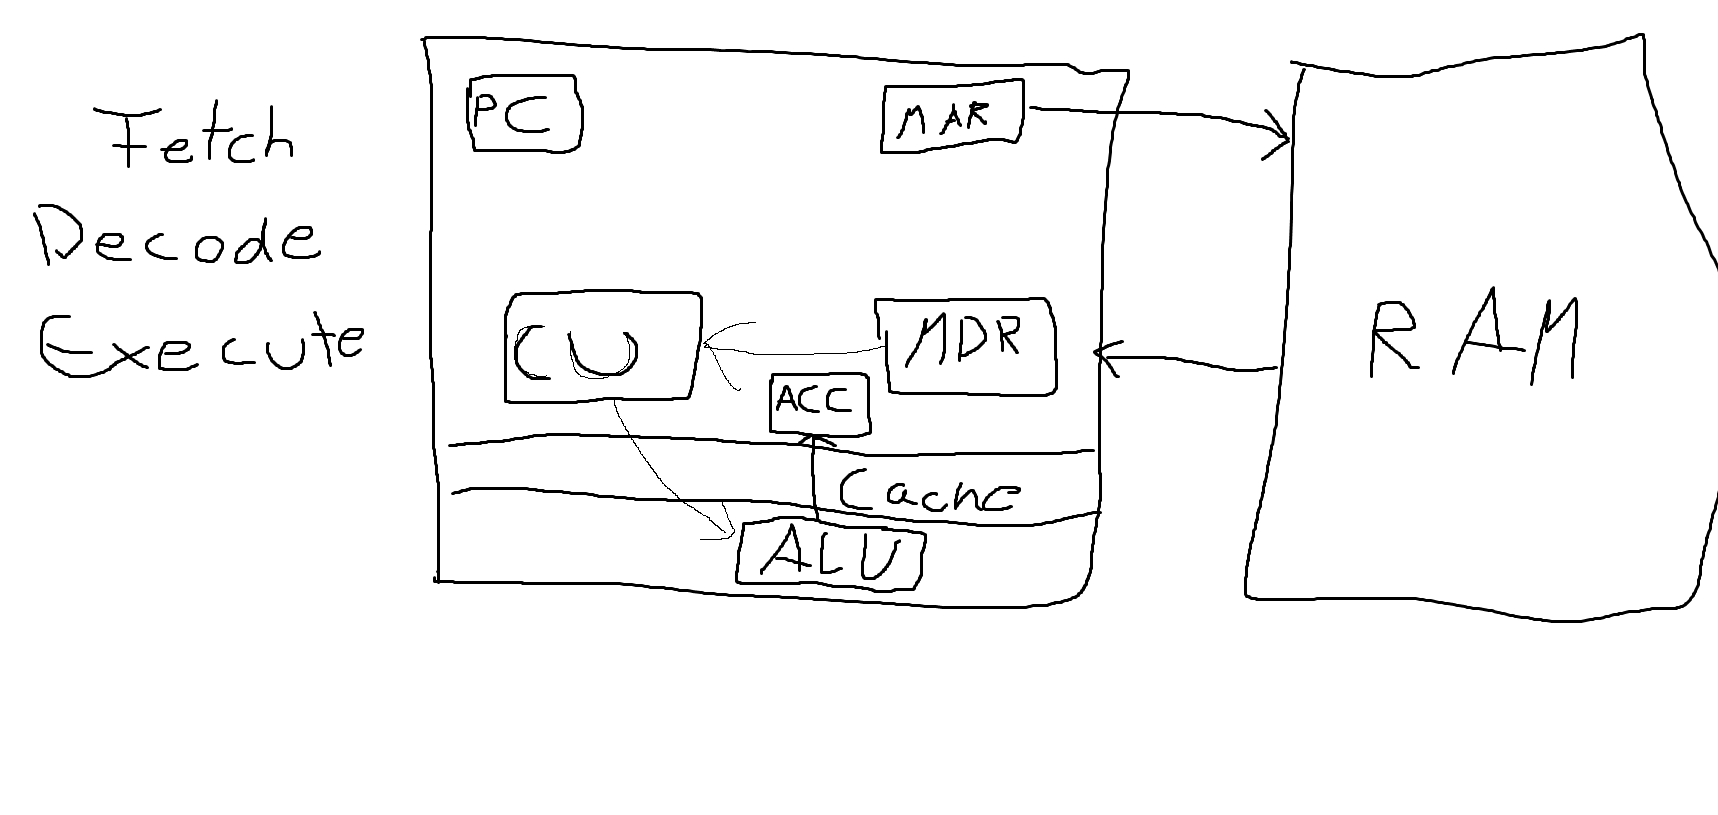 Fetch
Decode
Execute
PC
MAR
CU
MDR
ACC
Cache
ALU
RAM